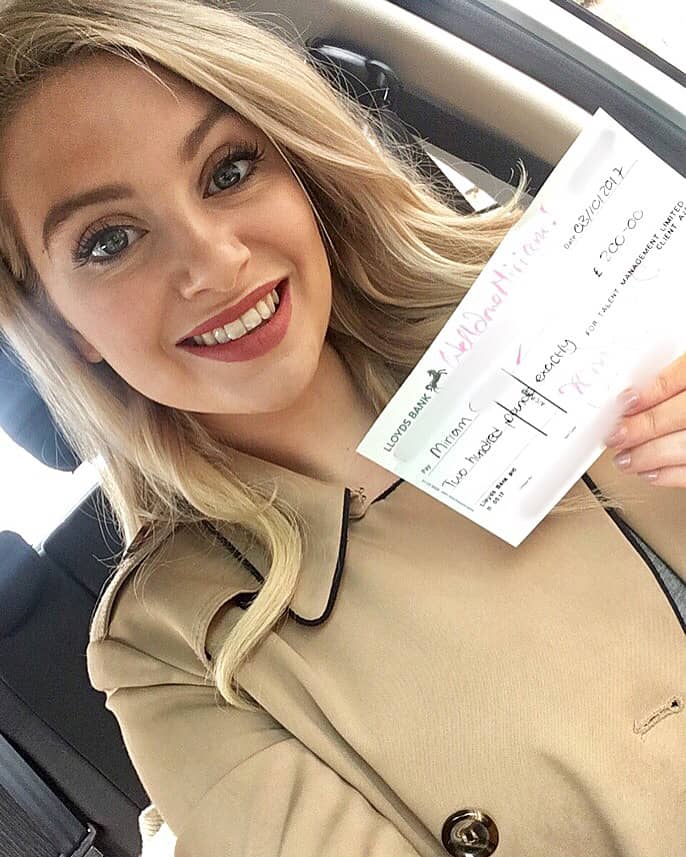 LLOYDS BANK
Well Done Miriam!
Date 03/10/2017
Pay Miriam
£ 200-00
Two hundred pounds exactly
FOR TALENT MANAGEMENT LIMITED
CLIENT A/C
Lloyds Bank plc